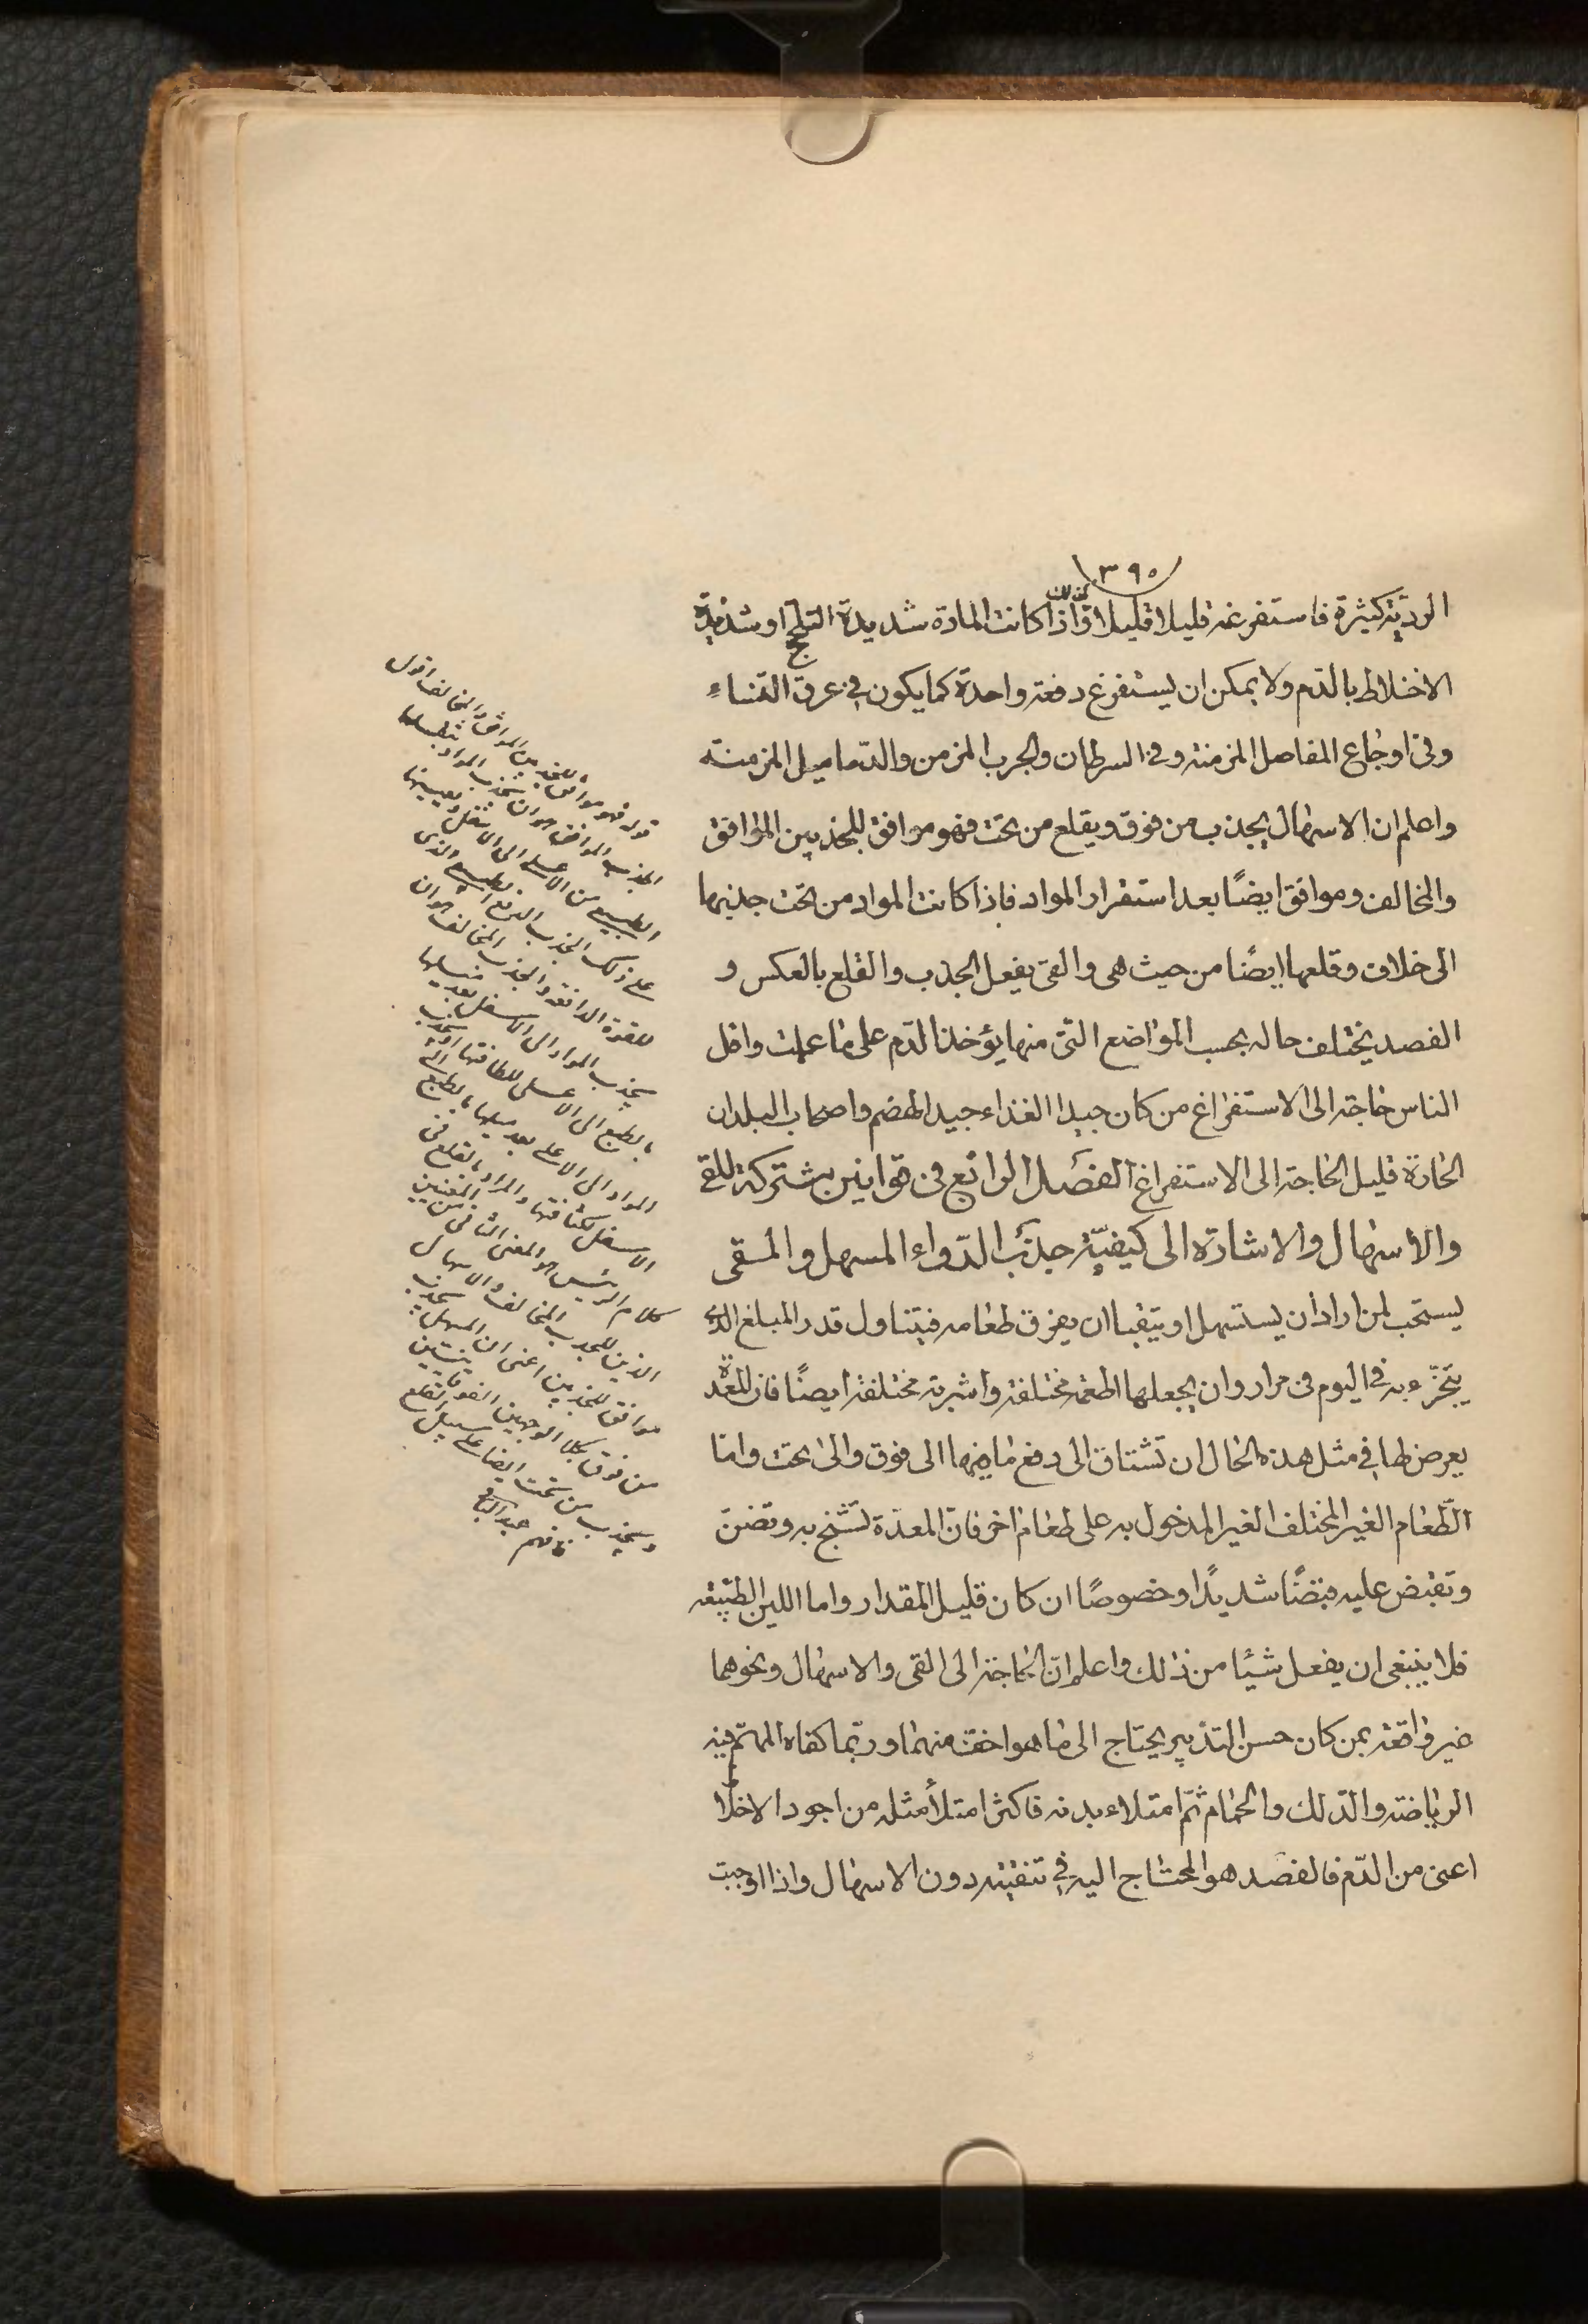 ٣٩٠
الرديّة كثيرة فاستفرغه قليلا قليلا وكذلك اذا كانت المادة شديدة التلحج او شديدة
الاختلاط بالدّم ولا يمكن ان يستفرغ دفعة واحدة كما يكون فى عرق النّساء
وفى اوجاع المفاصل المزمنة وفى السرطان والجرب المزمن والدّماميل المزمنة
واعلم ان الاسهال يجذب من فوق ويقلع من تحت فهو موافق للجذبين الموافق
والمخالف وموافق ايضًا بعد استقرار المواد فاذا كانت المواد من تحت جذبها
الى خلاف وقلعها ايضًا من حيث هى والقى يفعل الجذب والقلع بالعكس و
الفصد يختلف حاله بحسب المواضع التى منها يؤخذ الدّم على ما علمت واقل
الناس حاجة الى الاستفراغ من كان جيد الغذاء جيد الهضم واصحاب البلدان
الحارة قليل الحاجة الى الاستفراغ الفصل الرابع فى قوانين مشتركة للقى
والاسهال والاشارة الى كيفيّة جذب الدّواء المسهل والمقى
يستحب لمن اراد ان يستسهل او يتقيا ان يفرق طعامه فيتناول قدر المبلغ الذى
يتجزّء به فى اليوم فى مرار وان يجعلها اطعمة مختلفة واشربة مختلفة ايضًا فان المعدة
يعرض لها فى مثل هذه الحال ان تشتاق الى دفع ما فيها الى فوق والى تحت واما
الطّعام الغير المختلف الغير المدخول به على طعام اخر فانّ المعدة تشنج به وتضنّ
وتقبض عليه قبضًا شديدًا وخصوصًا ان كان قليل المقدار واما اللين الطبيعة
فلا ينبغى ان يفعل شيئا من ذلك واعلم انّ الحاجة الى القى والاسهال ونحوهما
غير واقعة بمن كان حسن التدبير يحتاج الى ما هو اخف منهما وربّما كفاه المهمّ فيه
الرياضة والدّلك والحمام ثمّ امتلاء بدنه فاكثر امتلأ مثله من اجود الاخلاط
اعنى من الدّم فالفصد هو المحتاج اليه فى تنقيته دون الاسهال واذا اوجبت
قوله فهو موافق للجذبين الموافق والمخالف اقول
الجذب الموافق هو ان يجذب المواد
الطبيعى من الاعلى الى الاسفل
على ذلك الجذب
للقوة الدافعة والجذب المخالف هو ان
يجذب المواد الى الاسفل بعد ميلها
بالطبع الى الاعلى للطافتها او يجذب
المواد الى الاعلى بعد ميلها بالطبع الى
الاسفل لكثافتها والمراد بالقلع فى
كلام الرئيس هو المعنى الثانى من المعنيين
الذين للجذب المخالف والاسهال
موافق للجذبين اعنى ان المسهل يجذب
من فوق بكلا الوجهين
ويجذب من تحت ايضا على سبيل القلع
فافهم عبد الباقى